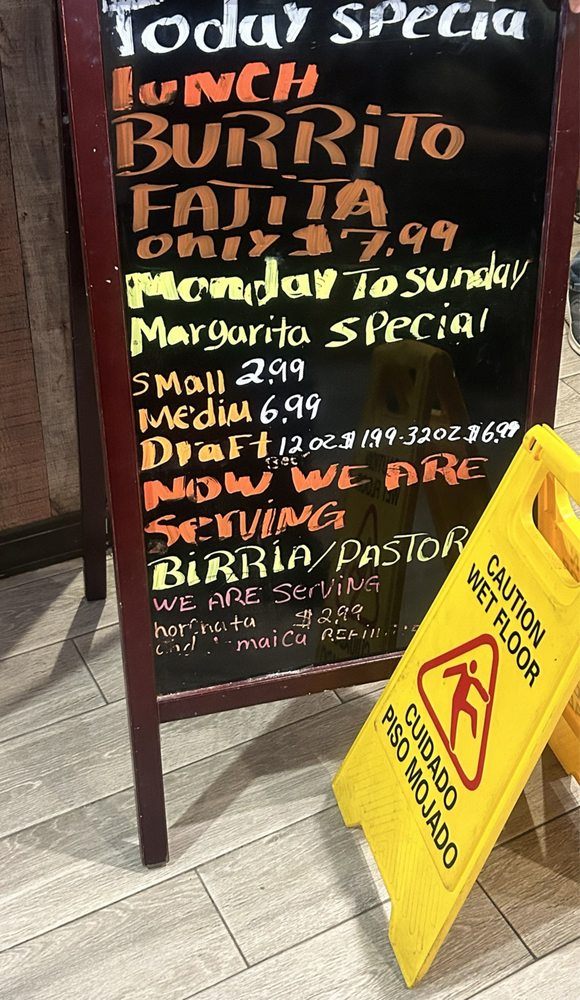 Today specia
LUNCH
BURRiTO
FAJiTA
only $ 7.99
Monday To Sunday
Margarita special
SMall 2.99
MediuM 6.99
DraFT 12 oz $ 1.99-32oz $ 6.99
Bee
NOW WE ARE
SerVING
BIRRIA/PASTOR
WE ARE SerViNG
horchata $ 2.99
and
CAUTION
WET FLOOR
CUIDADO
PISO MOJADO